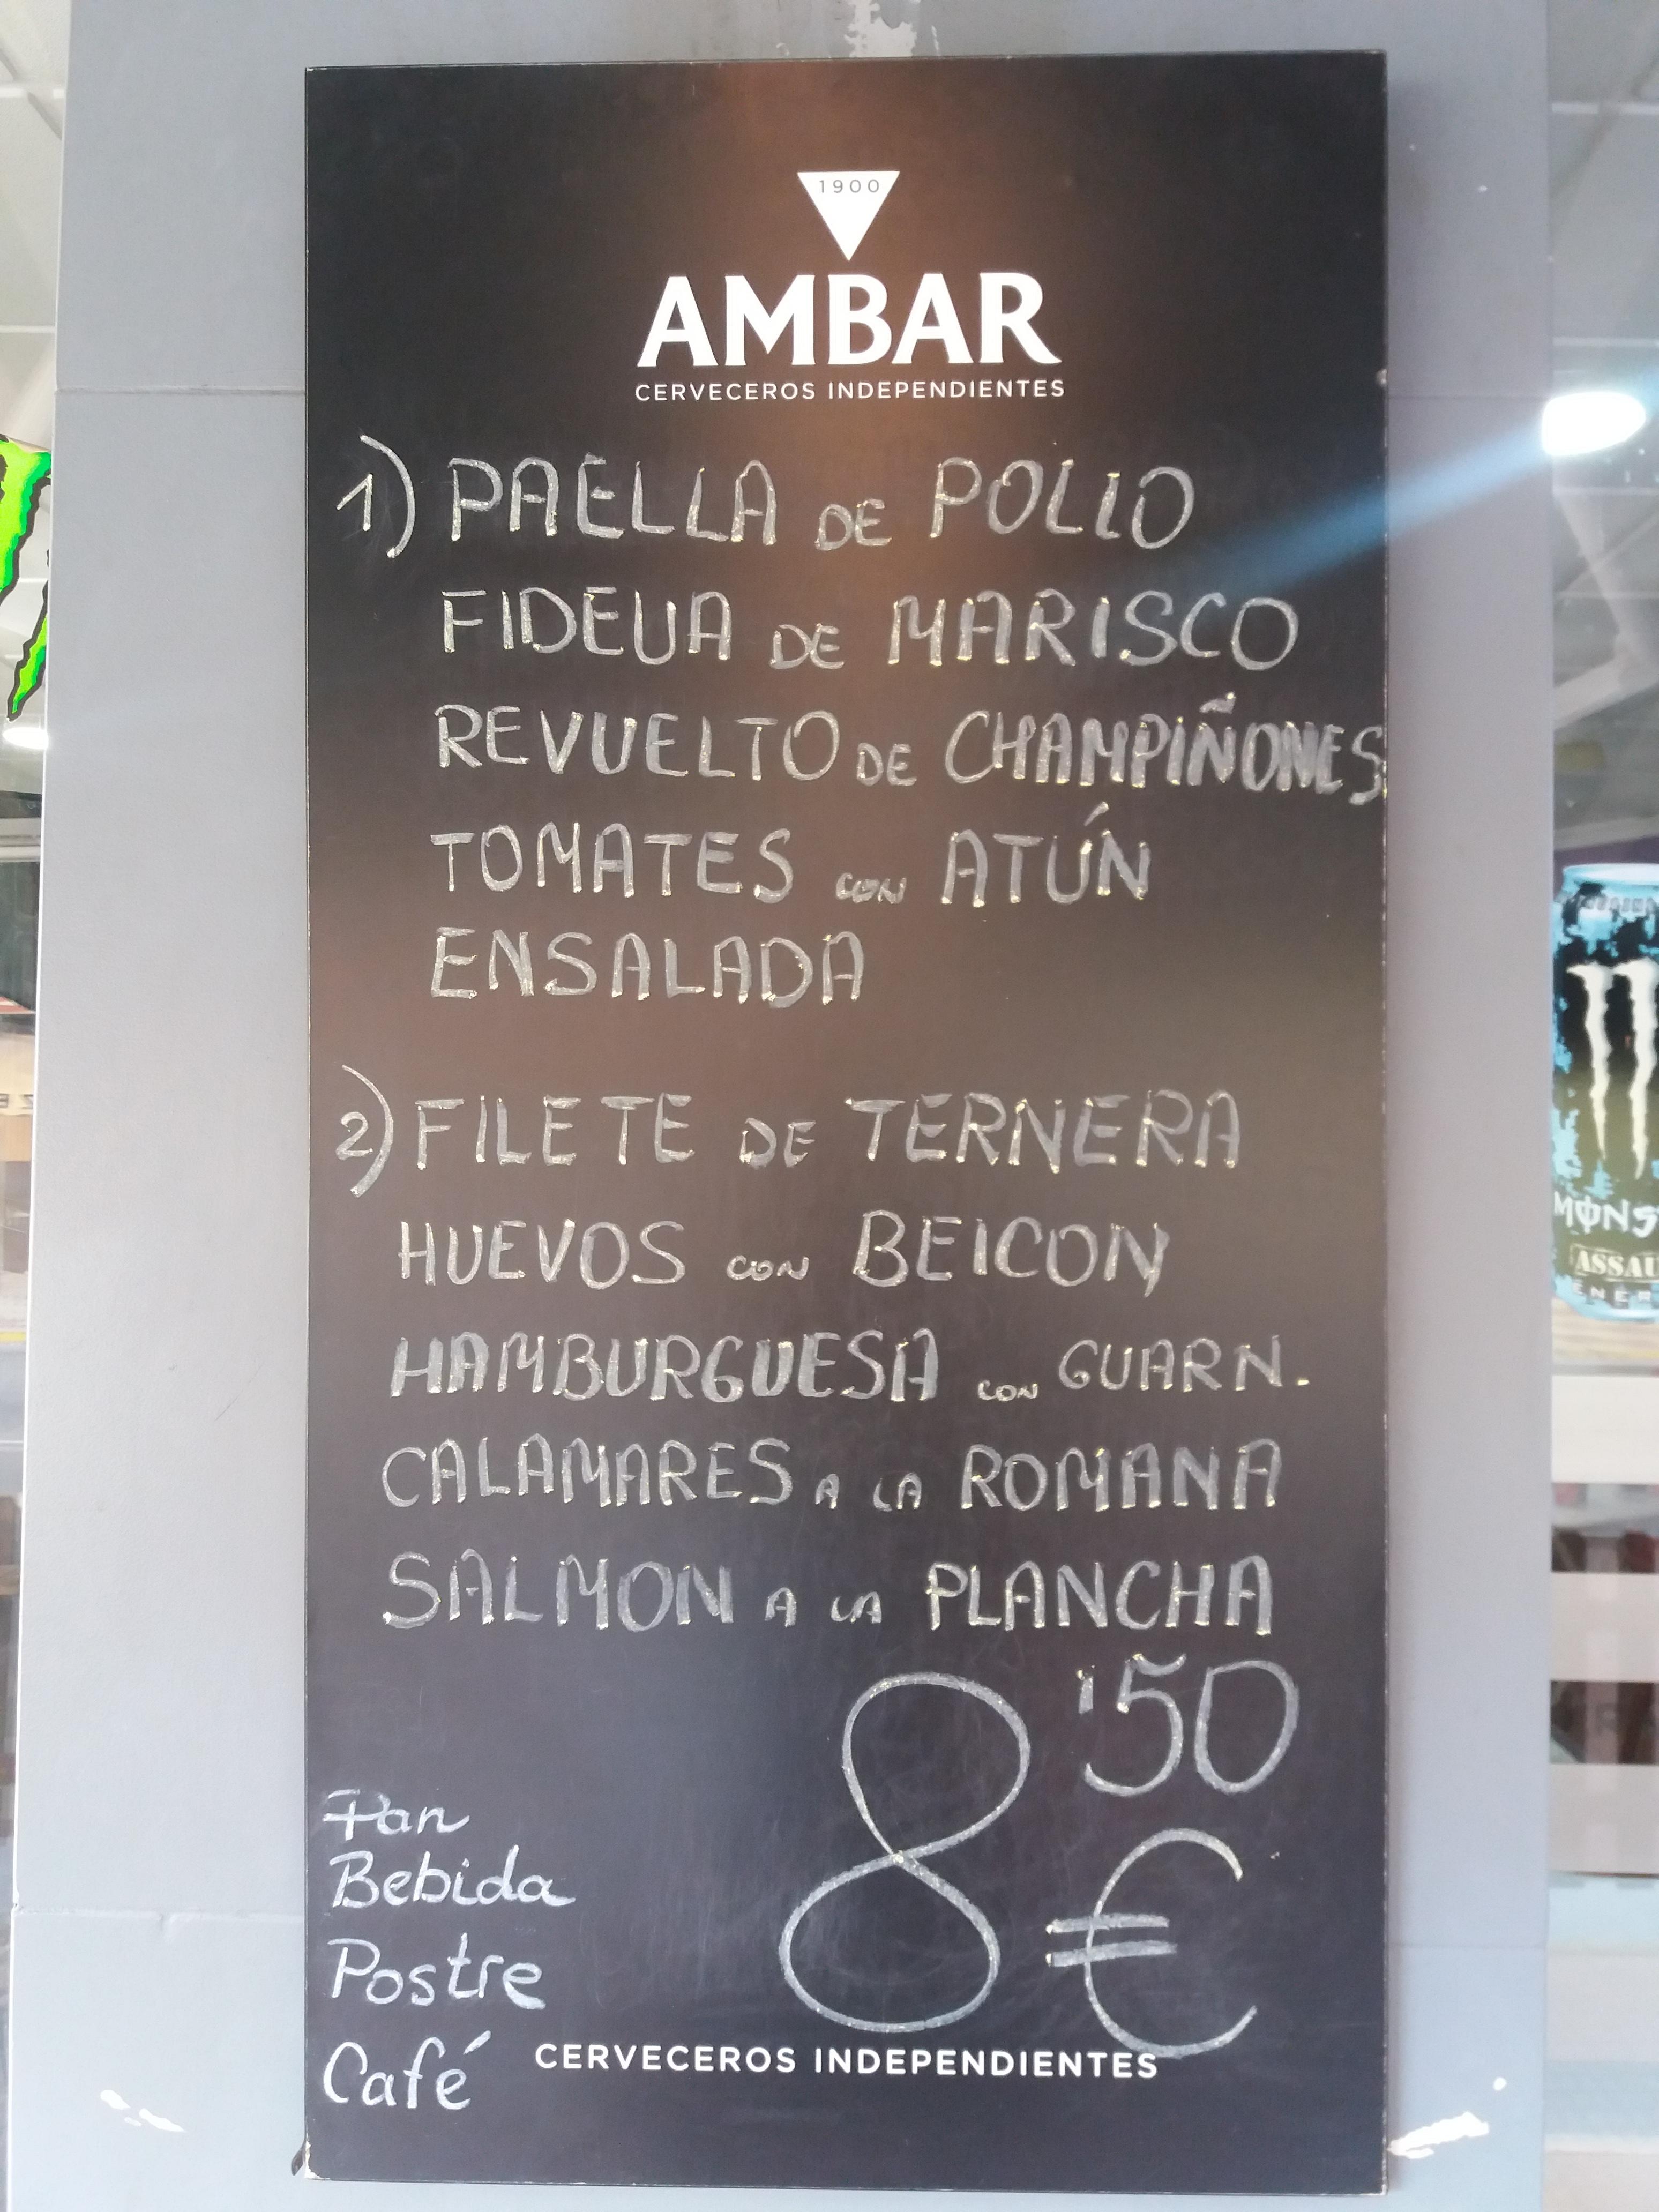 1900
AMBAR
CERVECEROS INDEPENDIENTES
1) PAELLA DE POLLO
FIDEUA DE MARISCO
REVUELTO DE CHAMPIÑONES
TOMATES CON ATÚN
ENSALADA
2) FILETE DE TERNERA
HUEVOS CON BEICON
HAMBURGUESA CON GUARN.
CALAMARES A LA ROMANA
SALMON A LA PLANCHA
8'50 €
Pan
Bebida
Postre
Café
CERVECEROS INDEPENDIENTES